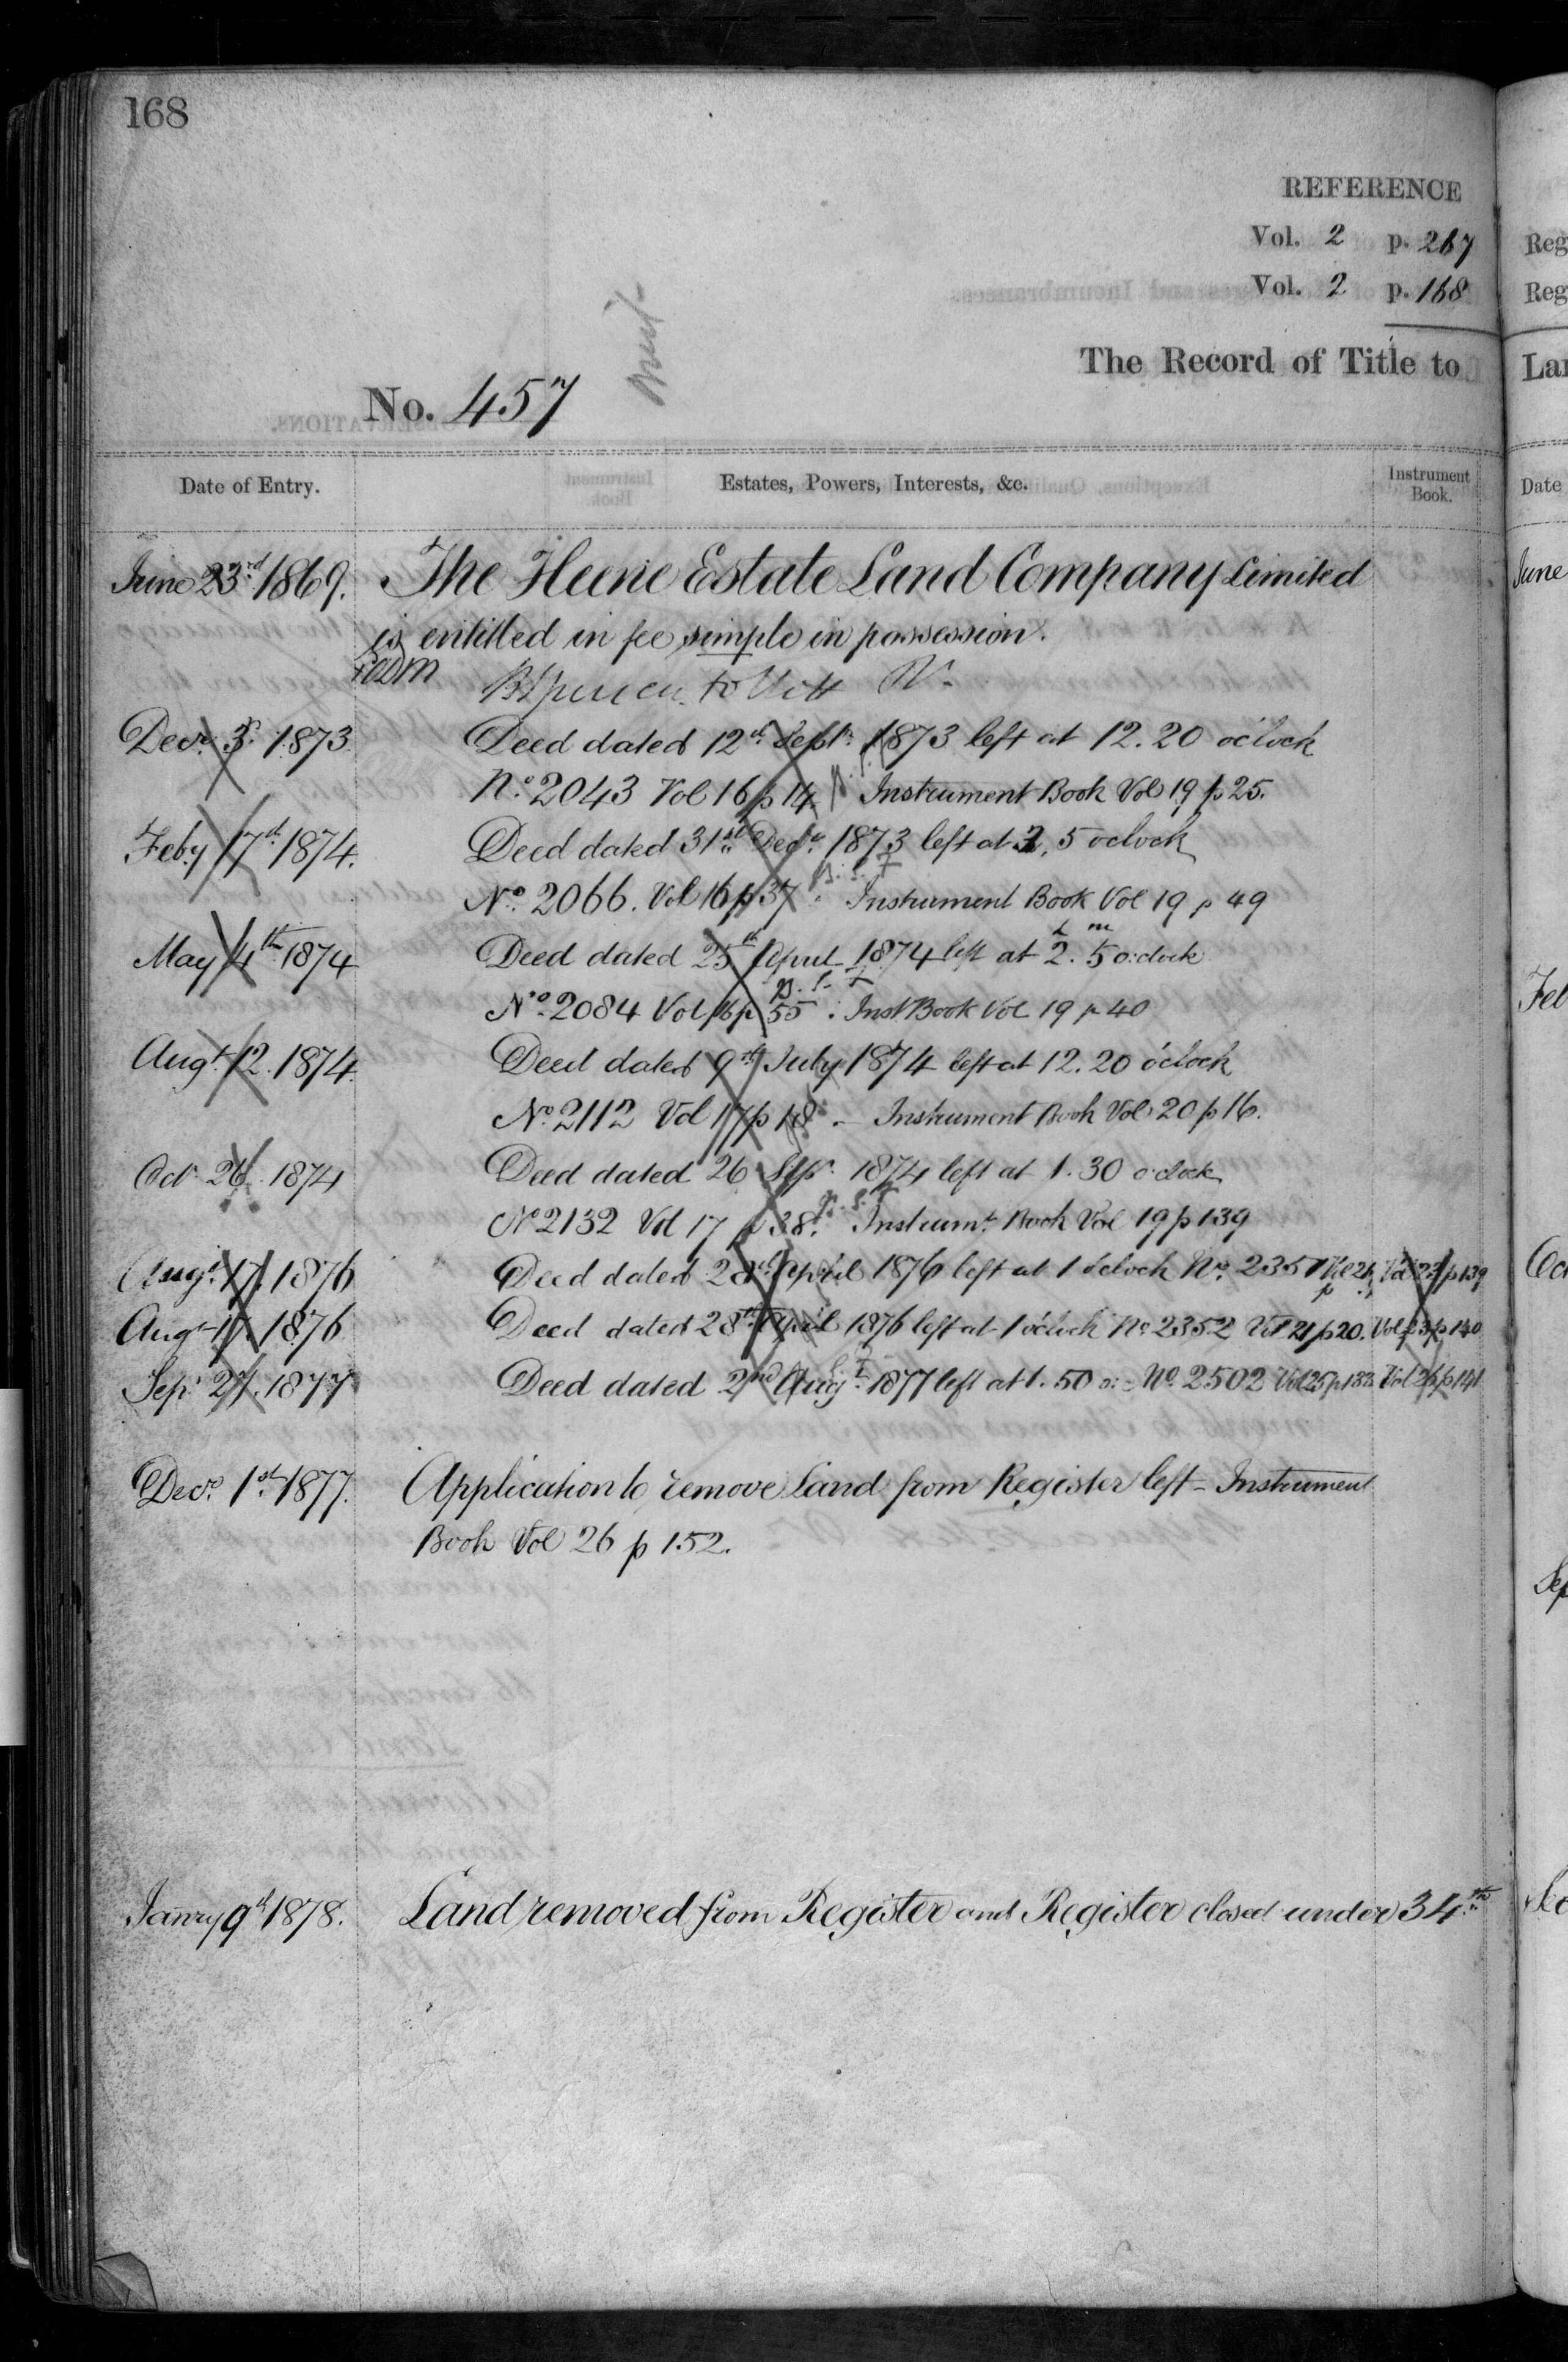 168
REFERENCE
Vol. 2 p. 267
Vol. 2 p. 168
The Record of Title to
No. 457
Date of Entry. Estates, Powers, Interests, &c. Instrument Book.
June 23rd 1869. The Heene Estate Land Company Limited
is entitled in fee simple in possession.
Decr. 3. 1873 Deed dated 12th Septr. 1873 left at 12.20 o'clock
No. 2043 Vol 16 p 14 Instrument Book Vol 19 p 25.
Feby 17th 1874. Deed dated 31st Decr. 1873 left at 2, 5 oclock
No. 2066. Vol 16 p 37 Instrument Book Vol 19 p 49
May 4th 1874 Deed dated 25th April 1874 left at 2. 5 o'clock
No. 2084 Vol 16 p 55 Inst Book Vol 19 p 40
Augt. 12. 1874. Deed dated 9th July 1874 left at 12.20 o'clock
No. 2112 Vol 17 p 18 - Instrument Book Vol 20 p 16.
Octr. 26. 1874 Deed dated 26 Sepr. 1874 left at 1.30 oclock
No 2132 Vol 17 p 38. Instrumt. Book Vol 19 p 139
Augt. 17. 1876 Deed dated 28th April 1876 left at 1 o'clock No. 2351 Vol 21 p Vol 23 p 139
Augt. 17. 1876 Deed dated 28th April 1876 left at 1 o'clock No. 2352 Vol 21 p 20. Vol 23 p 140
Sepr 27. 1877 Deed dated 2nd Augt. 1877 left at 1.50 o: - No. 2502 Vol 25 p 183 Vol 26 p 141
Decr. 1st 1877. Application to remove Land from Register left - Instrument
Book Vol 26 p 152.
Janry 9th 1878. Land removed from Register and Register closed under 34th
Reg
Reg
Date
June